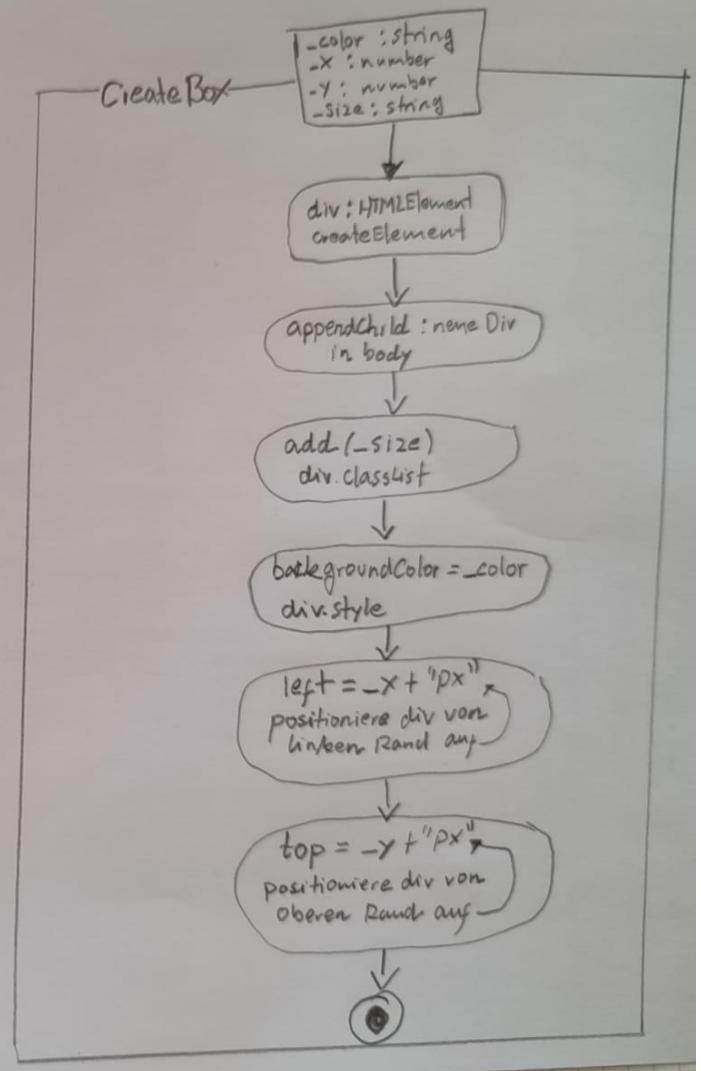 _color : string
_x : number
_y : number
_size : string
CreateBox
div : HTMLElement
createElement
appendChild : neue Div
in body
add (_size)
div.classList
backgroundColor = _color
div.style
left = _x + "px"
positioniere div von
linken Rand auf
top = _y + "px"
positioniere div von
oberen Rand auf